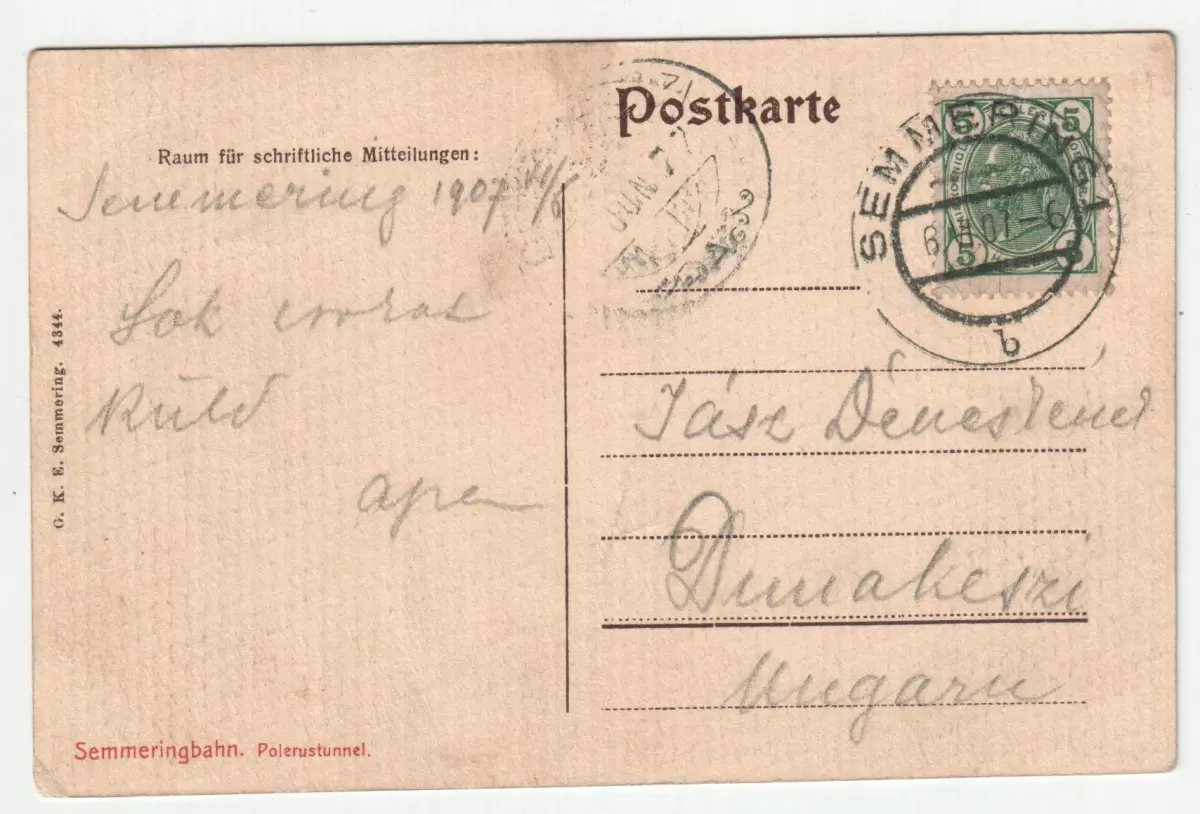 Postkarte
Raum für schriftliche Mitteilungen:
Semmering 1907
Sok
küld
apa
G. K. E. Semmering. 4344.
Semmeringbahn. Polerustunnel.
SEMMERING 1
6 07-6
b
5 5
5
JUN 7
Jász Dénesnek
Dunakeszi
Ungarn